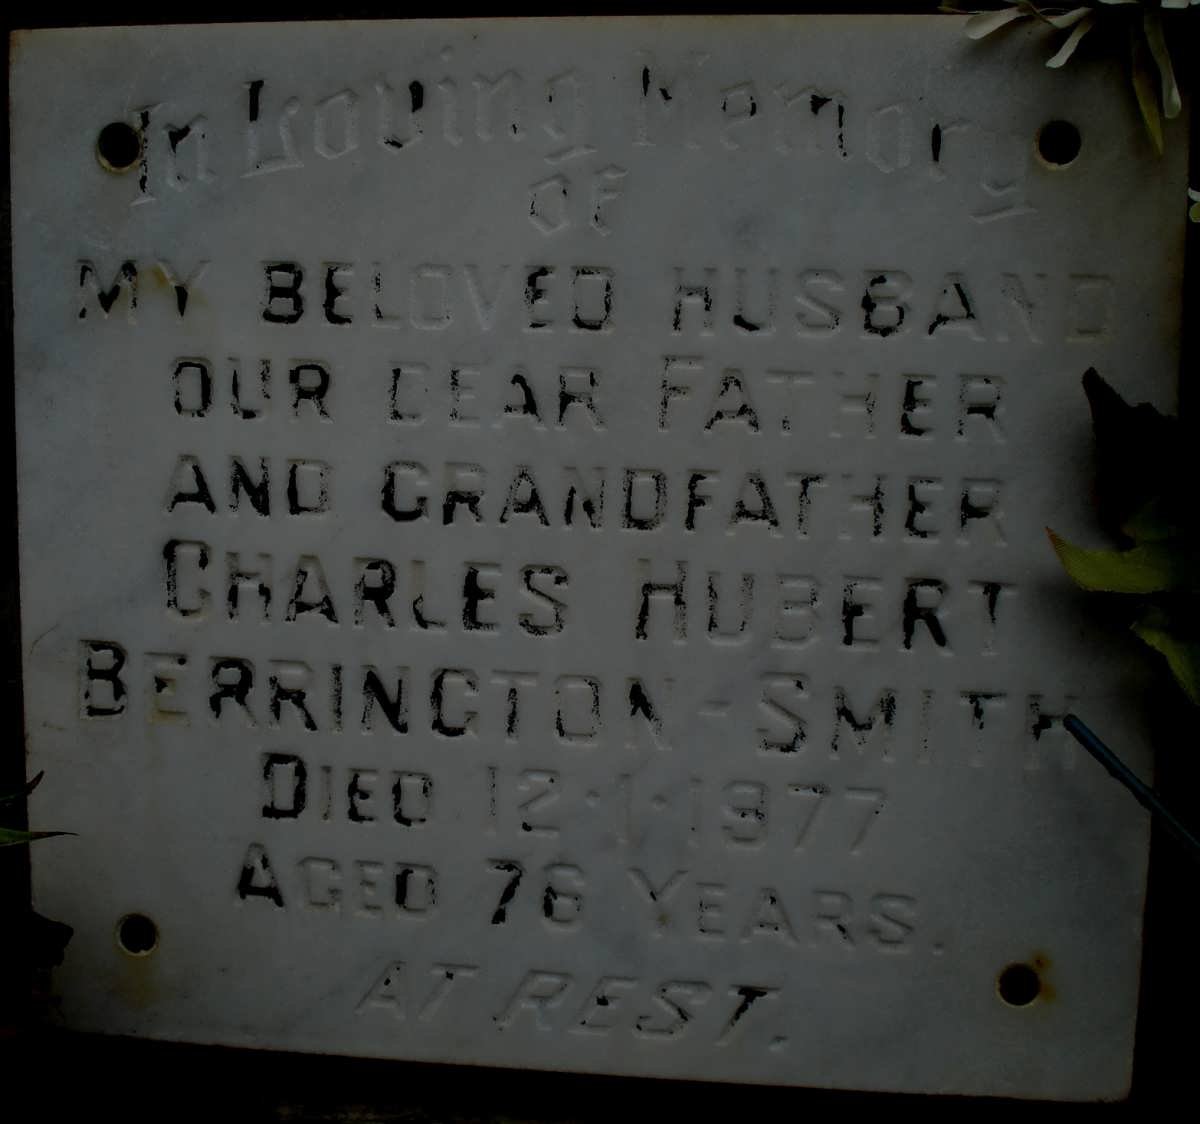 In Loving Memory
of
MY BELOVED HUSBAND
OUR DEAR FATHER
AND GRANDFATHER
CHARLES HUBERT
BERRINGTON-SMITH
DIED 12.1.1977
AGED 76 YEARS.
AT REST.